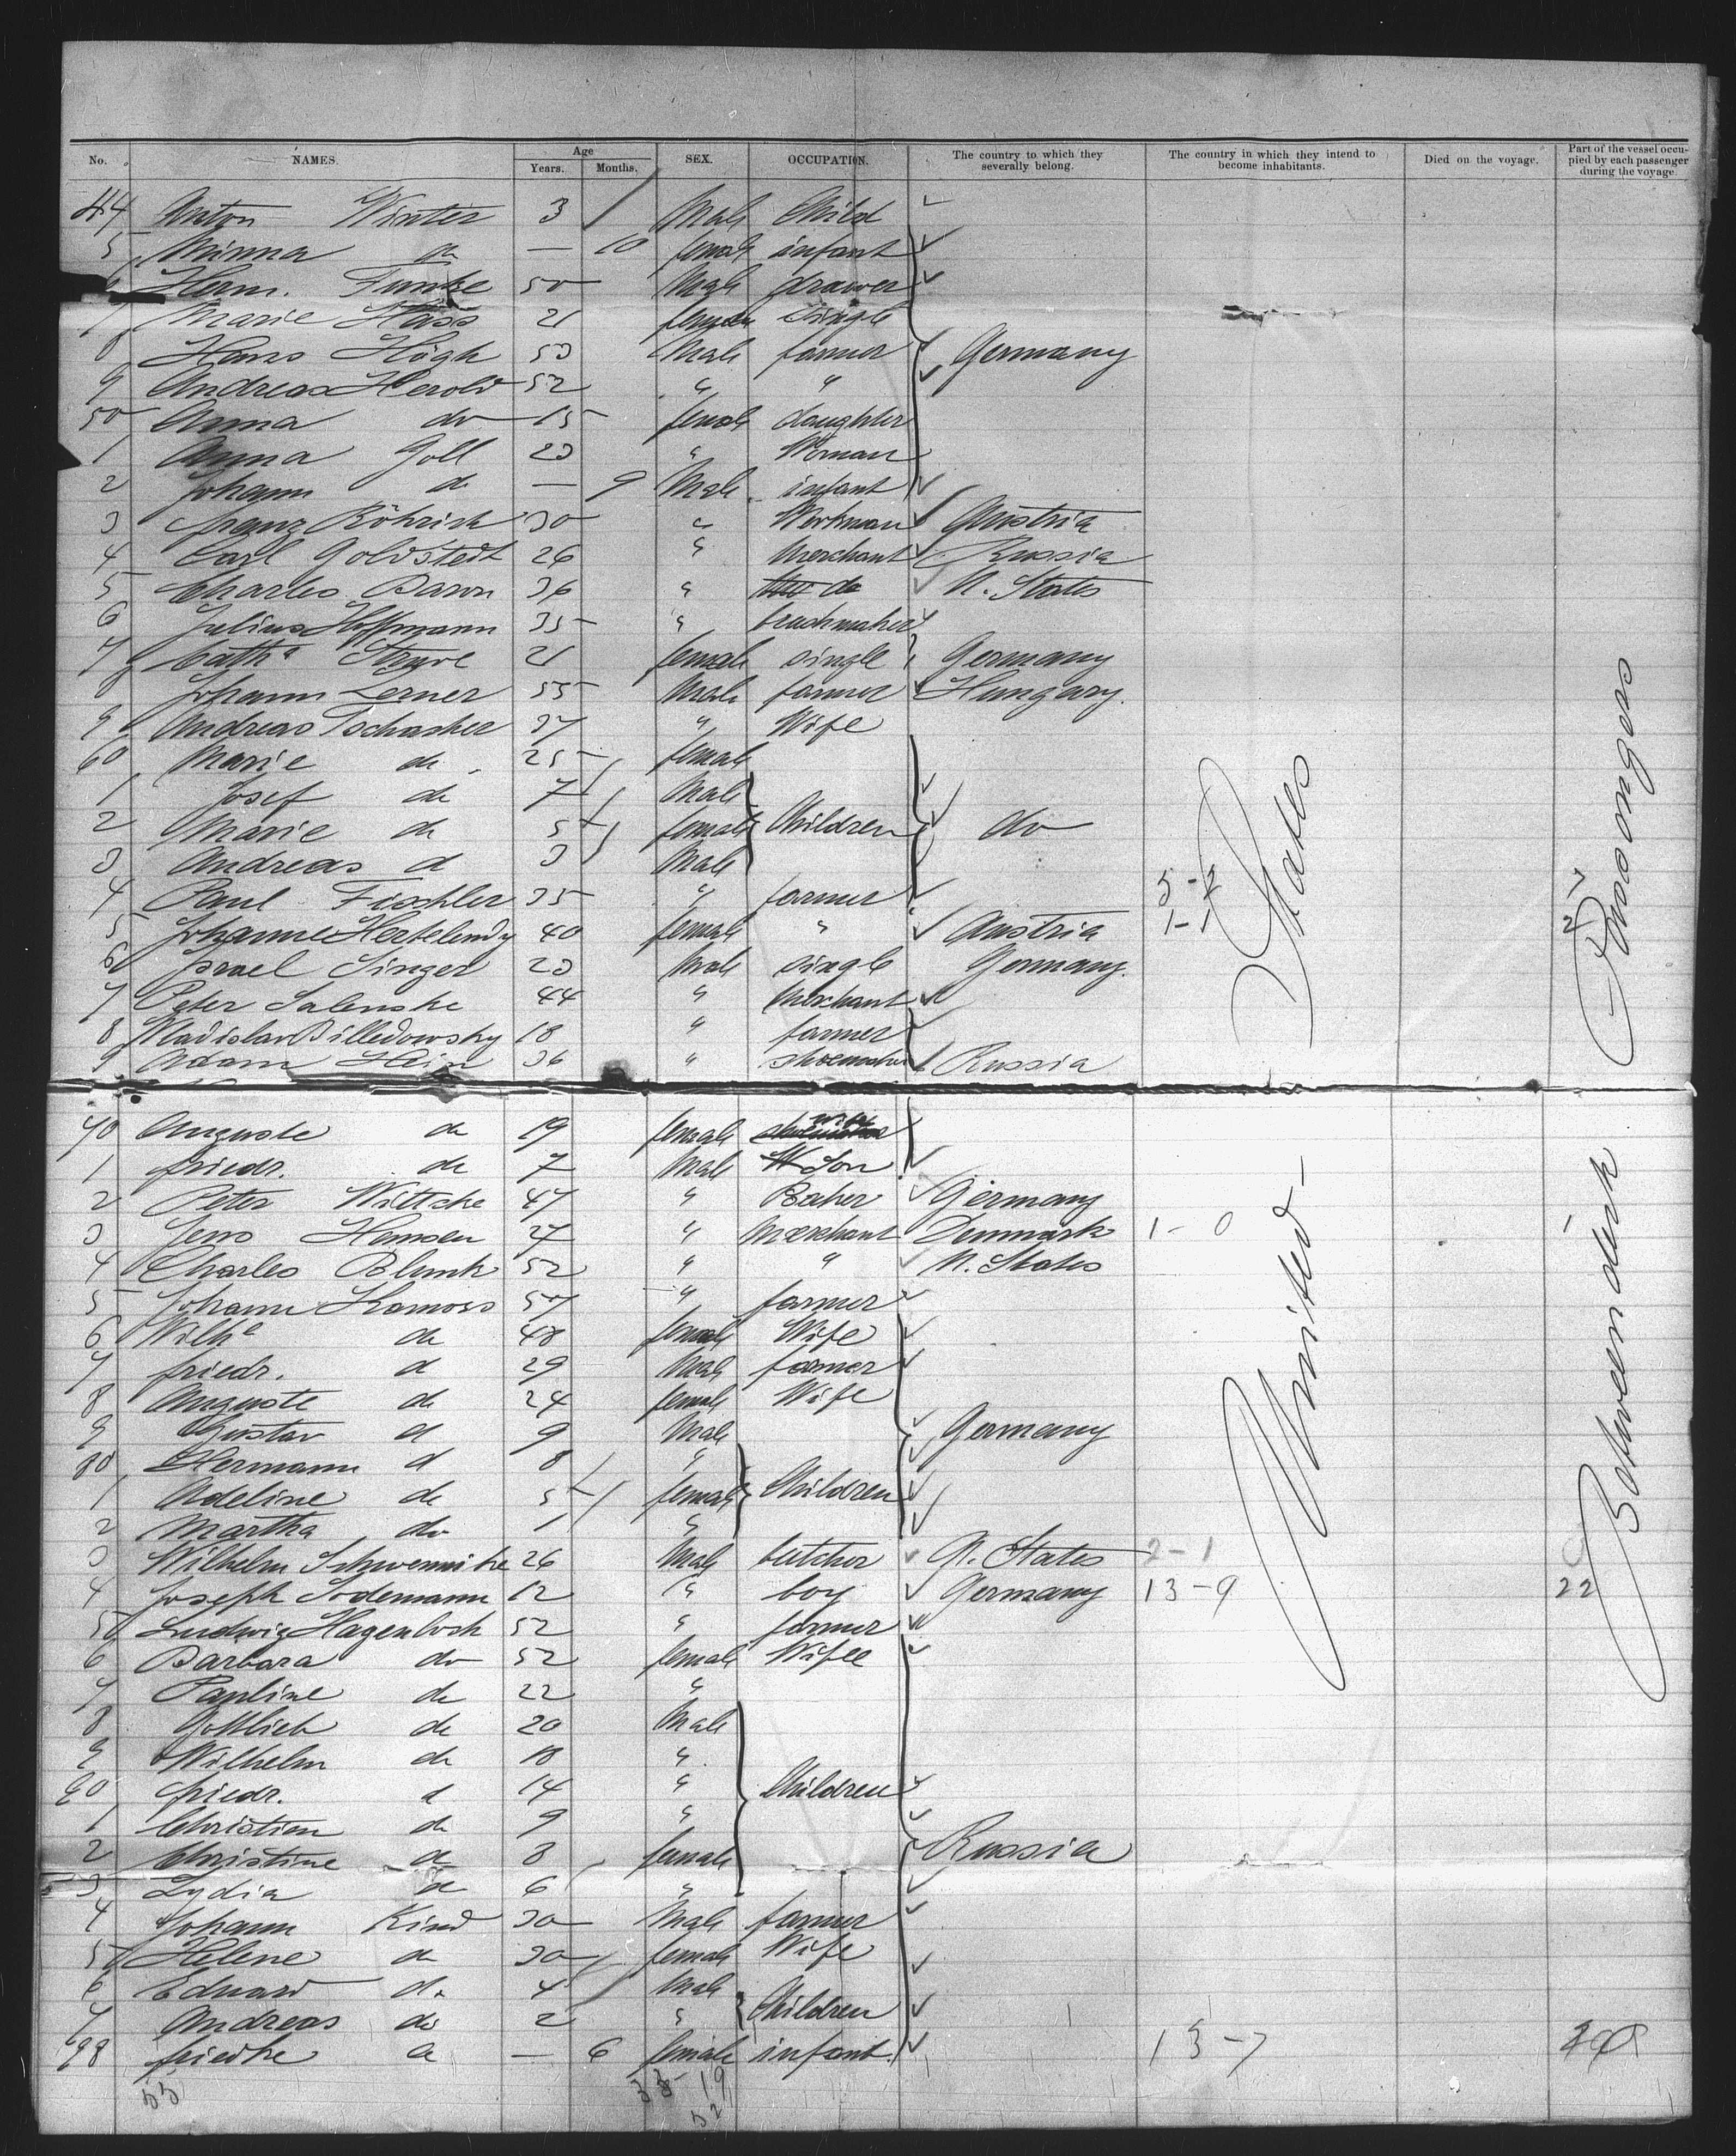 No. NAMES. Age Years. Months. SEX. OCCUPATION. The country to which they severally belong. The country in which they intend to become inhabitants. Died on the voyage. Part of the vessel occupied by each passenger during the voyage.
44 Anton Winter 3 Male Child
5 Minna do — 10 female infant
6 Herm. Funke 50 Male drawer
7 Marie Hass 21 female single
8 Hans Högh 53 Male farmer Germany
9 Andreas Herold 52 " "
50 Anna do 15 female daughter
1 Anna Goll 23 " Woman
2 Johann do — 9 Male infant
3 Franz Röhrich 30 " Workman Austria
4 Carl Goldstedt 26 " Merchant Russia
5 Charles Baron 36 " do U. States
6 Julius Hoffmann 35 "
7 Cath.a 21 female single Germany
8 Johann Lerner 55 Male farmer Hungary.
9 Andreas Tschasher 37 " Wife
60 Marie do 25 female
1 Josef do 7 Male
2 Marie do 5 female Children do
3 Andreas d 3 Male
4 Paul Fischler 35 " farmer
5 Johanne Hertelendy 40 female " Austria 1-1
6 Israel Singer 23 Male single Germany.
7 Peter Salenske 44 " Merchant
8 Wladislav Billedowsky 18 " farmer
9 Adam Hein 36 " shoemaker Russia
70 Auguste do 19 female wife
1 friedr. do 7 Male Son
2 Peter Wittcke 47 " Baker Germany
3 Jens Hansen 27 " Merchant Denmark 1-0 1
4 Charles Blunk 52 " " U. States
5 Johann Kamoss 57 " farmer
6 Wilh.e do 48 female Wife
7 friedr. d 29 Male farmer
8 Auguste do 24 female Wife
9 Gustav d 9 Male Germany
80 Hermann d 8 "
1 Adeline do 5 female Children
2 Martha do 1 "
3 Wilhelm Schwennicke 26 Male butcher U. States 2-1
4 Joseph Sodemann 12 " boy Germany 13-9 22
5 Ludwig Hagenloch 52 " farmer
6 Barbara do 52 female Wife
7 Pauline do 22 "
8 Gottlieb do 20 Male
9 Wilhelm do 18 "
90 friedr. d 14 " Children
1 Christian do 9 "
2 Christine do 8 female Russia
3 Lydia do 6 "
4 Johann Kind 30 Male farmer
5 Helene do 30 female Wife
6 Eduard do 4 Male
7 Andreas do 2 " Children
98 do — 6 female infant
13-7
55 33 19
United States
Between deck Passengers